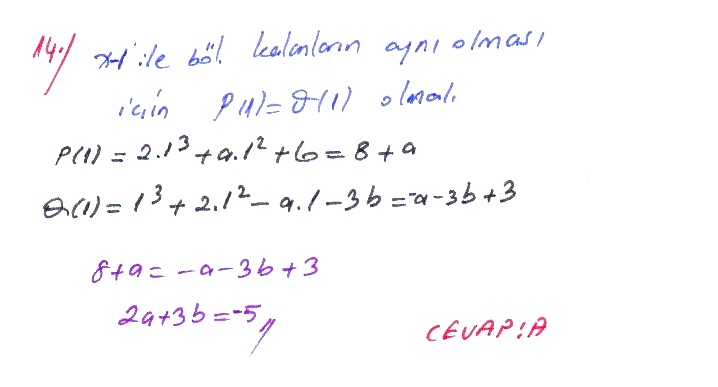 14.) x-1 ile böl. kalanların aynı olması
için P(1)=Q(1) olmalı.
P(1) = 2.1³ + a.1² + 6 = 8 + a
Q(1) = 1³ + 2.1² - a.1 - 3b = -a - 3b + 3
8+a = -a - 3b + 3
2a+3b = -5 //
CEVAP: A